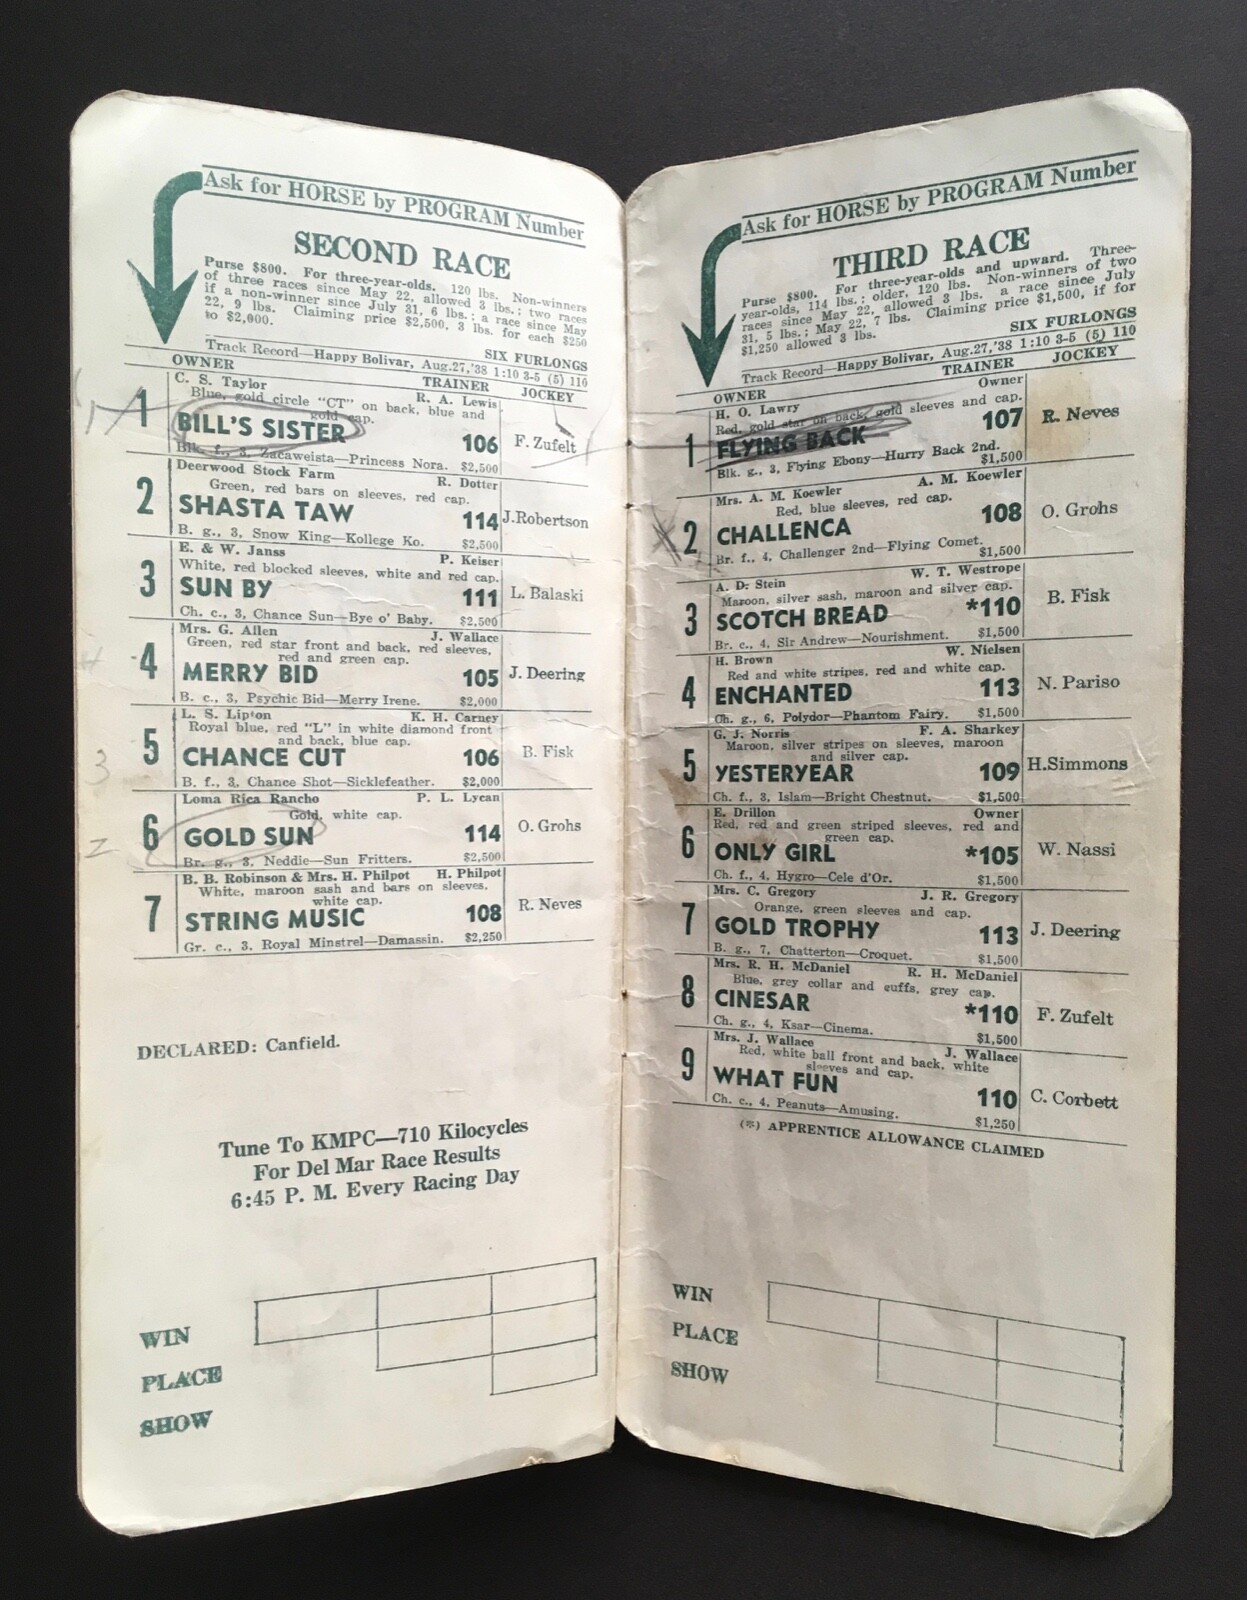 Ask for HORSE by PROGRAM Number
SECOND RACE
Purse $800. For three-year-olds. 120 lbs. Non-winners
of three races since May 22, allowed 3 lbs.; two races
if a non-winner since July 31, 6 lbs.; a race since May
22, 9 lbs. Claiming price $2,500, 3 lbs. for each $250
to $2,000.
SIX FURLONGS
Track Record—Happy Bolivar, Aug.27,'38 1:10 3-5 (5) 110
OWNER TRAINER JOCKEY
C. S. Taylor R. A. Lewis
Blue, gold circle "CT" on back, blue and
gold cap.
1 BILL'S SISTER 106 F. Zufelt
Blk. f., 3, Zacaweista—Princess Nora. $2,500
Deerwood Stock Farm R. Dotter
Green, red bars on sleeves, red cap.
2 SHASTA TAW 114 J.Robertson
B. g., 3, Snow King—Kollege Ko. $2,500
E. & W. Janss P. Keiser
White, red blocked sleeves, white and red cap.
3 SUN BY 111 L. Balaski
Ch. c., 3, Chance Sun—Bye o' Baby. $2,500
Mrs. G. Allen J. Wallace
Green, red star front and back, red sleeves,
red and green cap.
4 MERRY BID 105 J. Deering
B. c., 3, Psychic Bid—Merry Irene. $2,000
L. S. Lipton K. H. Carney
Royal blue, red "L" in white diamond front
and back, blue cap.
5 CHANCE CUT 106 B. Fisk
B. f., 3, Chance Shot—Sicklefeather. $2,000
3
Loma Rica Rancho P. L. Lycan
Gold, white cap.
6 GOLD SUN 114 O. Grohs
Br. g., 3, Neddie—Sun Fritters. $2,500
2
B. B. Robinson & Mrs. H. Philpot H. Philpot
White, maroon sash and bars on sleeves,
white cap.
7 STRING MUSIC 108 R. Neves
Gr. c., 3, Royal Minstrel—Damassin. $2,250
DECLARED: Canfield.
Tune To KMPC—710 Kilocycles
For Del Mar Race Results
6:45 P. M. Every Racing Day
WIN
PLACE
SHOW
Ask for HORSE by PROGRAM Number
THIRD RACE
Purse $800. For three-year-olds and upward. Three-
year-olds, 114 lbs.; older, 120 lbs. Non-winners of two
races since May 22, allowed 3 lbs. a race since July
31, 5 lbs.; May 22, 7 lbs. Claiming price $1,500, if for
$1,250 allowed 3 lbs.
SIX FURLONGS
Track Record—Happy Bolivar, Aug.27,'38 1:10 3-5 (5) 110
OWNER TRAINER JOCKEY
H. O. Lawry Owner
Red, gold star on back, gold sleeves and cap.
1 FLYING BACK 107 R. Neves
Blk. g., 3, Flying Ebony—Hurry Back 2nd. $1,500
Mrs. A. M. Koewler A. M. Koewler
Red, blue sleeves, red cap.
2 CHALLENCA 108 O. Grohs
Br. f., 4, Challenger 2nd—Flying Comet. $1,500
A. D. Stein W. T. Westrope
Maroon, silver sash, maroon and silver cap.
3 SCOTCH BREAD *110 B. Fisk
Br. c., 4, Sir Andrew—Nourishment. $1,500
H. Brown W. Nielsen
Red and white stripes, red and white cap.
4 ENCHANTED 113 N. Pariso
Ch. g., 6, Polydor—Phantom Fairy. $1,500
G. J. Norris F. A. Sharkey
Maroon, silver stripes on sleeves, maroon
and silver cap.
5 YESTERYEAR 109 H.Simmons
Ch. f., 3, Islam—Bright Chestnut. $1,500
E. Drillon Owner
Red, red and green striped sleeves, red and
green cap.
6 ONLY GIRL *105 W. Nassi
Ch. f., 4, Hygro—Cele d'Or. $1,500
Mrs. C. Gregory J. R. Gregory
Orange, green sleeves and cap.
7 GOLD TROPHY 113 J. Deering
B. g., 7, Chatterton—Croquet. $1,500
Mrs. R. H. McDaniel R. H. McDaniel
Blue, grey collar and cuffs, grey cap.
8 CINESAR *110 F. Zufelt
Ch. g., 4, Ksar—Cinema. $1,500
Mrs. J. Wallace J. Wallace
Red, white ball front and back, white
sleeves and cap.
9 WHAT FUN 110 C. Corbett
Ch. c., 4, Peanuts—Amusing. $1,250
(*) APPRENTICE ALLOWANCE CLAIMED
WIN
PLACE
SHOW